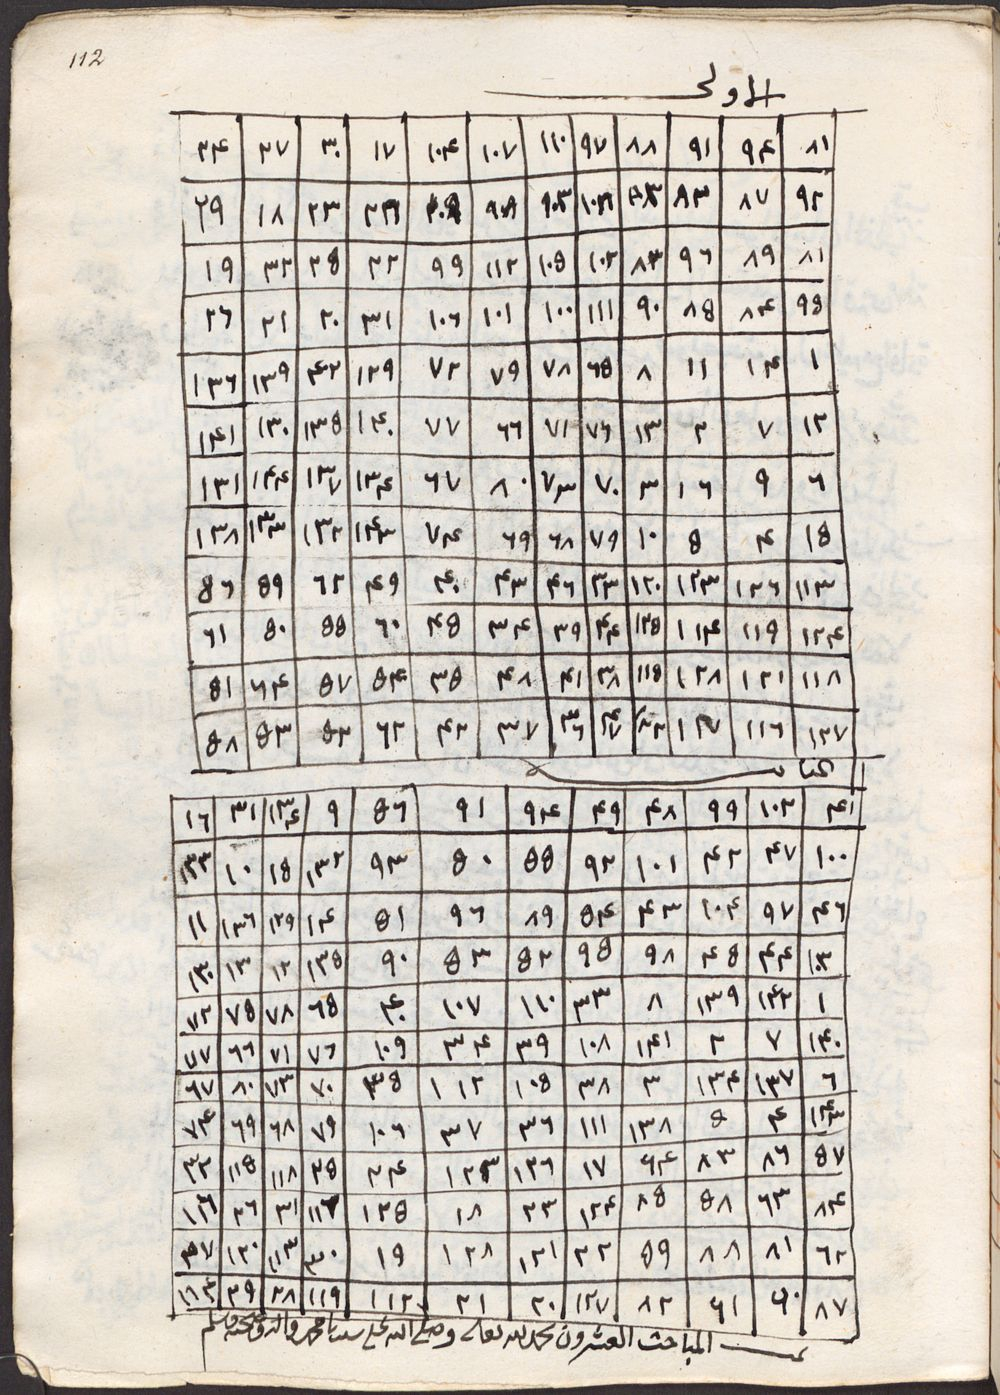 الاولى
٨١ ٩٤ ٩١ ٨٨ ٩٧ ١١٠ ١٠٧ ١٠٤ ١٧ ٣٠ ٢٧ ٢٤
٩٢ ٨٧ ٨٣ ٩٣ ١٠٨ ١٠٣ ٩٨ ١٠٩ ٢٨ ٢٣ ١٨ ٢٩
٨٦ ٨٩ ٩٦ ٨٣ ١٠٢ ١٠٥ ١١٢ ٩٩ ٢٢ ٢٥ ٣٢ ١٩
٩٥ ٨٤ ٨٥ ٩٠ ١١١ ١٠٠ ١٠١ ١٠٦ ٣١ ٢٠ ٢١ ٢٦
١ ١٤ ١١ ٨ ٦٥ ٧٨ ٧٩ ٧٢ ١٢٩ ١٤٢ ١٣٩ ١٣٦
١٢ ٧ ٢ ١٣ ٧٦ ٧١ ٦٦ ٧٧ ١٤٠ ١٣٥ ١٣٠ ١٤١
٦ ٩ ١٦ ٣ ٧٠ ٧٣ ٨٠ ٦٧ ١٣٤ ١٣٧ ١٤٤ ١٣١
١٥ ٤ ٥ ١٠ ٧٩ ٦٨ ٦٩ ٧٤ ١٤٣ ١٣٢ ١٣٣ ١٣٨
١١٣ ١٢٦ ١٢٣ ١٢٠ ٣٣ ٤٦ ٤٣ ٤٠ ٤٩ ٦٢ ٥٩ ٥٦
١٢٤ ١١٩ ١١٤ ١٢٥ ٤٤ ٣٩ ٣٤ ٤٥ ٦٠ ٥٥ ٥٠ ٦١
١١٨ ١٢١ ١٢٨ ١١٥ ٣٨ ٤١ ٤٨ ٣٥ ٥٤ ٥٧ ٦٤ ٥١
١٢٧ ١١٦ ١١٧ ١٢٢ ٤٧ ٣٦ ٣٧ ٤٢ ٦٢ ٥٢ ٥٣ ٥٨
٤١ ١٠٢ ٩٩ ٤٨ ٤٩ ٩٤ ٩١ ٥٦ ٩ ١٣٤ ٣١ ١٦
١٠٠ ٤٧ ٤٢ ١٠١ ٩٢ ٥٥ ٥٠ ٩٣ ١٣٢ ١٥ ١٠ ١٣٣
٤٦ ٩٧ ١٠٤ ٤٣ ٥٤ ٨٩ ٩٦ ٥١ ١٤ ١٢٩ ١٣٦ ١١
١٠٣ ٤٤ ٤٥ ٩٨ ٩٥ ٥٢ ٥٣ ٩٠ ١٣٥ ١٢ ١٣ ١٣٠
١ ١٤٢ ١٣٩ ٨ ٣٣ ١١٠ ١٠٧ ٤٠ ٦٥ ٧٨ ٧٥ ٧٢
١٤٠ ٧ ٢ ١٤١ ١٠٨ ٣٩ ٣٤ ١٠٩ ٧٦ ٧١ ٦٦ ٧٧
٦ ١٣٧ ١٣٤ ٣ ٣٨ ١٠٥ ١١٢ ٣٥ ٧٠ ٧٣ ٨٠ ٦٧
١٤٣ ٤ ٥ ١٣٨ ١١١ ٣٦ ٣٧ ١٠٦ ٧٩ ٦٨ ٦٩ ٧٤
٥٧ ٨٦ ٨٣ ٦٤ ١٧ ١٢٦ ١٢٣ ٢٤ ٢٥ ١١٨ ١١٥ ٣٢
٨٤ ٦٣ ٥٨ ٨٥ ١٢٤ ٢٣ ١٨ ١٢٥ ١١٦ ٣١ ٢٦ ١١٧
٦٢ ٨١ ٨٨ ٥٩ ٢٢ ١٢١ ١٢٨ ١٩ ٣٠ ١١٣ ١٢٠ ٢٧
٨٧ ٦٠ ٦١ ٨٢ ١٢٧ ٢٠ ٢١ ١٢٢ ١١٩ ٢٨ ٢٩ ١١٤
المباحث العشرون بحمد الله تعالى وصلى الله على سيدنا محمد واله وصحبه وسلم
112